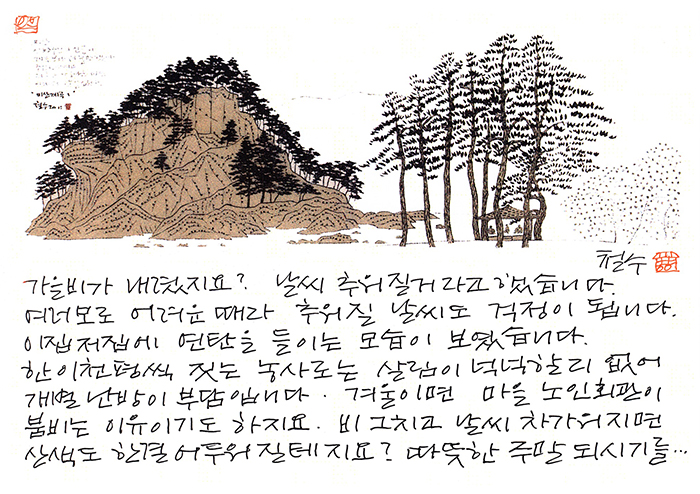 철수
가을비가 내렸지요? 날씨 추워질거라고 했습니다.
여러모로 어려운 때라 추워질 날씨도 걱정이 됩니다.
이집저집에 연탄을 들이는 모습이 보였습니다.
한 이천평씩 짓는 농사로는 살림이 넉넉할리 없어
개별난방이 부담입니다. 겨울이면 마을 노인회관이
붐비는 이유이기도 하지요. 비 그치고 날씨 차가워지면
산색도 한결 어두워질테지요? 따뜻한 주말 되시기를…